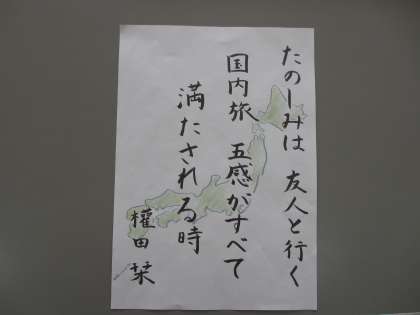 たのしみは 友人と行く
国内旅 五感がすべて
満たされる時
權田 栞